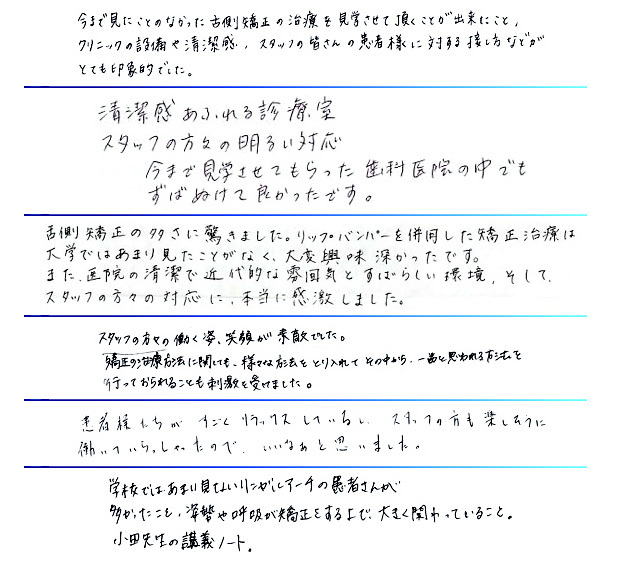 今まで見たことのなかった舌側矯正の治療を見学させて頂くことが出来たこと，
クリニックの設備や清潔感，スタッフの皆さんの患者様に対する接し方などが
とても印象的でした。
清潔感あふれる診療室
スタッフの方々の明るい対応
今まで見学させてもらった歯科医院の中でも
ずばぬけて良かったです。
舌側矯正の多さに驚きました。リップバンパーを併用した矯正治療は
大学ではあまり見たことがなく、大変興味深かったです。
また、医院の清潔で近代的な雰囲気とすばらしい環境、そして、
スタッフの方々の対応に、本当に感激しました。
スタッフの方々の働く姿、笑顔が素敵でした。
矯正の治療方法に関しても、様々な方法をとり入れてその中から、一番と思われる方法を
行っておられることも刺激を受けました。
患者様たちがすごくリラックスしているし、スタッフの方も楽しそうに
働いていらっしゃったので、いいなぁと思いました。
学校ではあまり見ないリンガルアーチの患者さんが
多かったこと，姿勢や呼吸が矯正をする上で、大きく関わっていること。
小田先生の講義ノート。